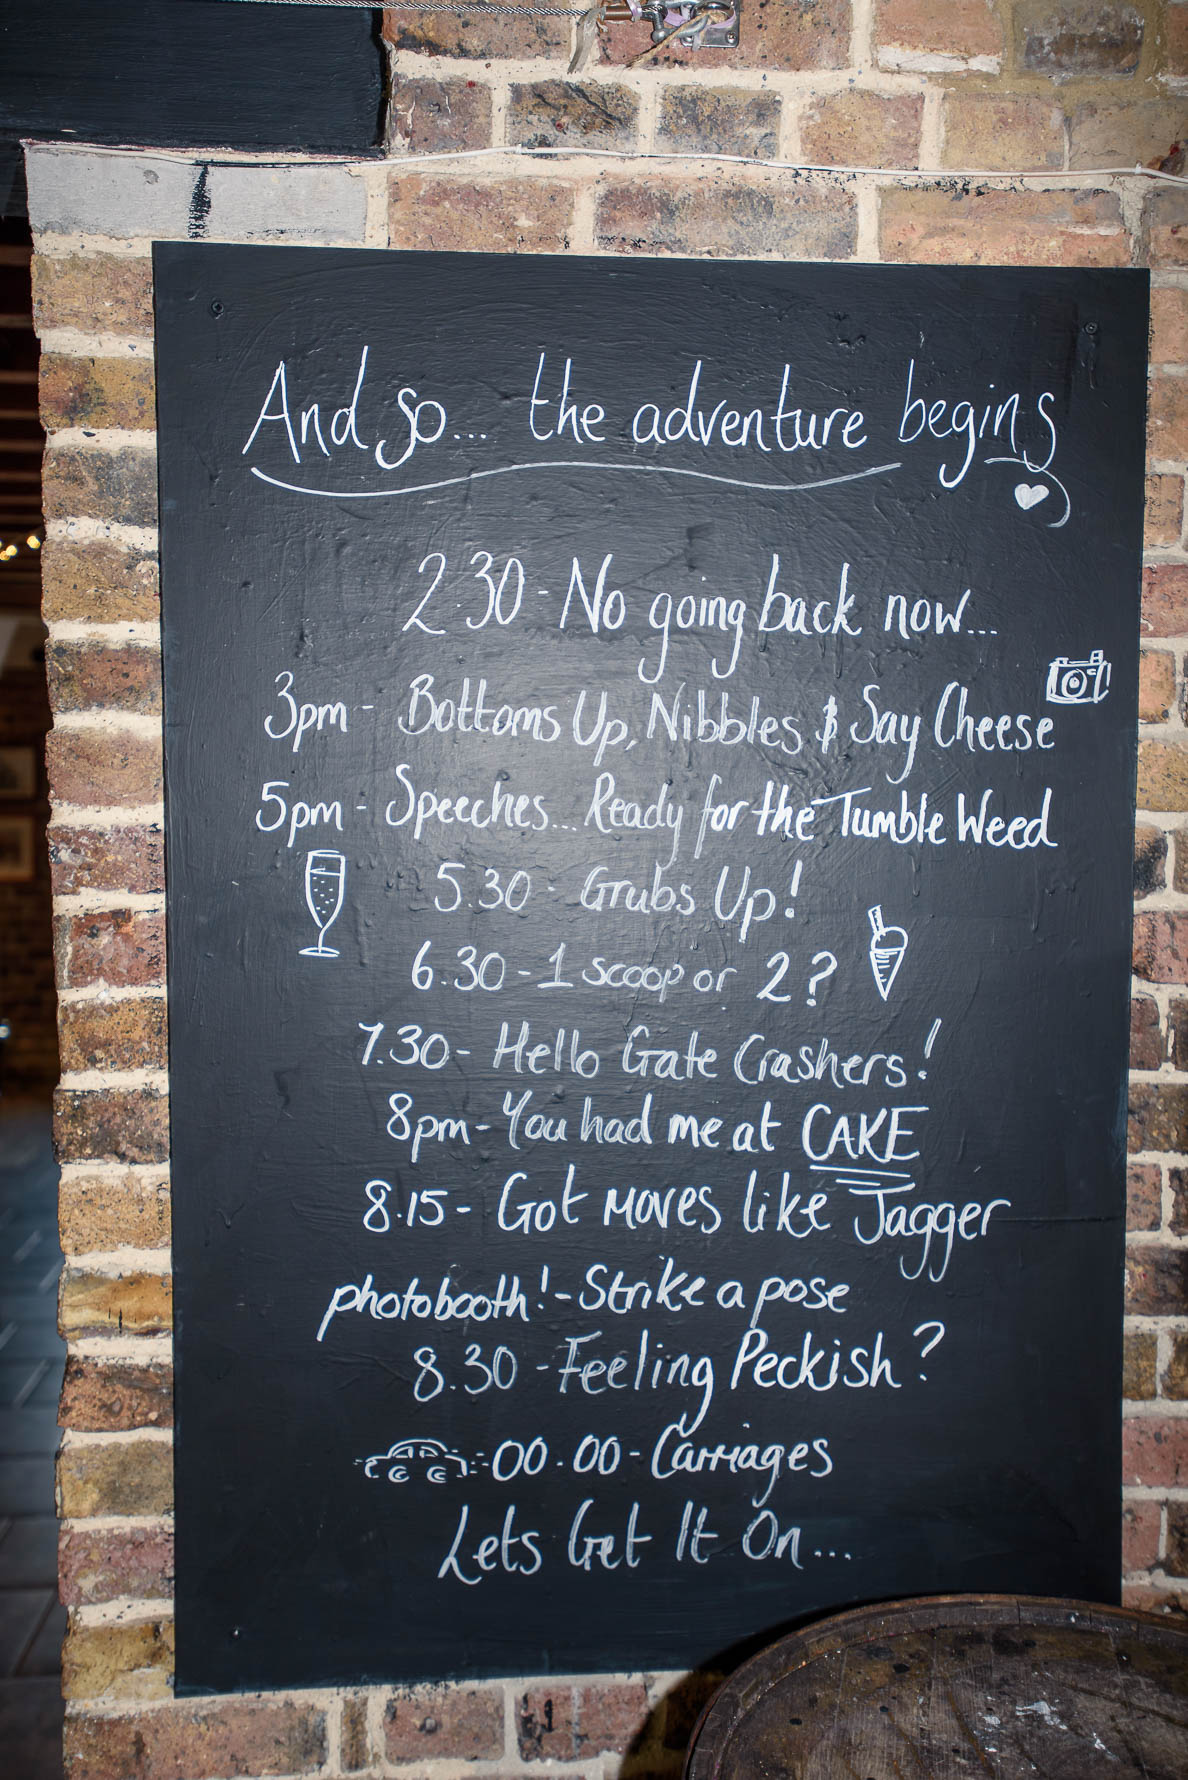 And so... the adventure begins
2.30 - No going back now...
3pm - Bottoms Up, Nibbles & Say Cheese
5pm - Speeches... Ready for the Tumble Weed
5.30 - Grubs Up!
6.30 - 1 scoop or 2?
7.30 - Hello Gate Crashers!
8pm - You had me at CAKE
8.15 - Got moves like Jagger
photobooth! - Strike a pose
8.30 - Feeling Peckish?
00.00 - Carriages
Lets Get It On...